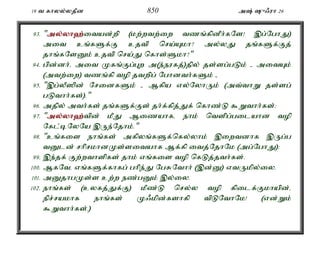 19 வ காலல்லதீன 850 அஷ் ஷுஃரா 26
93. "அல்லாஹ்வையன்றி (மற்றவற்றை வணங்கினீர்களே! இப்போது) அவை உங்களுக்கு உதவி செய்யுமா! அல்லது தங்களுக்குத் தாங்களேனும் உதவி செய்து கொள்ளுமா!"
94. பின்னர், அவை முகங்குப்புற அ(ந்நரகத்)தில் தள்ளப்படும் - அவையும் (அவற்றை) வணங்கி வழி தவறிப் போனவர்களும் ,
95. "இப்லீஸின் சேனைகளும் - ஆகிய எல்லோரும் (அவ்வாறு தள்ளப் படுவார்கள்)."
96. அதில் அவர்கள் தங்களுக்குள் தர்க்கித்துக் கொண்டு கூறுவார்கள்:
97. "அல்லாஹ்வின் மீது ஆணையாக, நாம் வெளிப்படையான வழி கேட்டிலேயே இருந்தோம்."
98. "உங்களை நாங்கள் அகிலங்களுக்கெல்லாம் இறைவனாக இருப்ப வனுடன் சரிசமானமுள்ளவையாக ஆக்கி வைத்தோமே (அப்போது):
99. இந்தக் குற்றவாளிகள் தாம் எங்களை வழி கெடுத்தவர்கள்.
100. ஆகவே, எங்களுக்காகப் பரிந்து பேசுவோர் (இன்று) எவருமில்லை.
101. அனுதாபமுள்ள உற்ற நண்பனும் இல்லை.
102. நாங்கள் (உலகத்துக்கு) மீண்டு செல்ல வழி கிடைக்குமாயின், நிச்சயமாக நாங்கள் முஃமின்களாகி விடுவோமே! (என்றும் கூறுவார்கள்.)